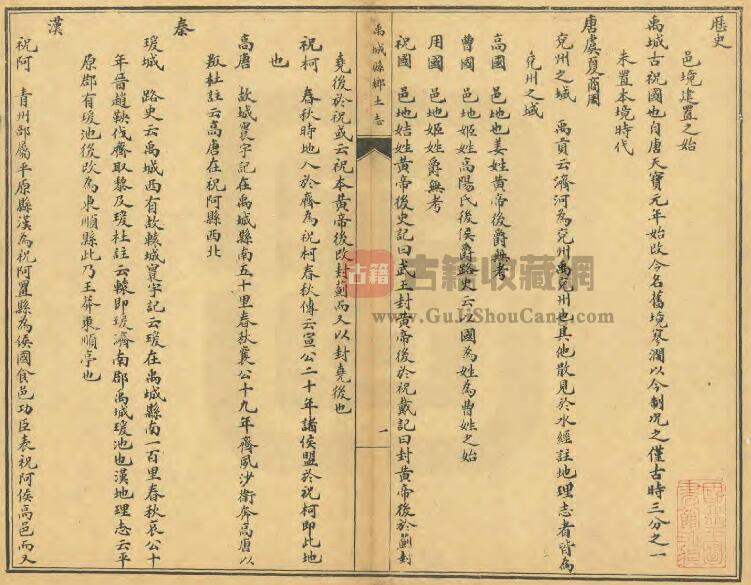 歷史
邑境建置之始
禹城古祝國也自唐天寶元年始改今名舊境寥濶以今制况之僅古時三分之一
未置本境時代
唐虞夏商周
兗州之域 禹貢云濟河為兗州禹兗州也其他散見於水經註地理志者皆為
兗州之域
高國 邑地也姜姓黃帝後爵無考
曹國 邑地姬姓高陽氏後侯爵路史云以國為姓為曹姓之始
用國 邑地姬姓爵無考
祝國 邑地姞姓黃帝後史記曰武王封黃帝後於祝戴記曰封黃帝後於薊封
禹城縣鄉土志
一
堯後於祝或云祝本黃帝後改封薊而又以封堯後也
祝柯 春秋時地入於齊為祝柯春秋傳云宣公二十年諸侯盟於祝柯即此地
也
高唐 故城寰宇記在禹城縣南五十里春秋襄公十九年齊夙沙衛奔高唐以
叛杜註云高唐在祝阿縣西北
秦
瑗城 路史云禹城西有故轅城寰宇記云瑗在禹城縣南一百里春秋哀公十
年晉趙鞅伐齊取犂及瑗杜註云轅即瑗濟南郡禹城瑗池也漢地理志云平
原郡有瑗池後改為東順縣此乃王莽東順亭也
漢
祝阿 青州部屬平原縣漢為祝阿置縣為侯國食邑功臣表祝阿侯高邑而又
古籍
古籍收藏網
www.GuJiShouCang.com